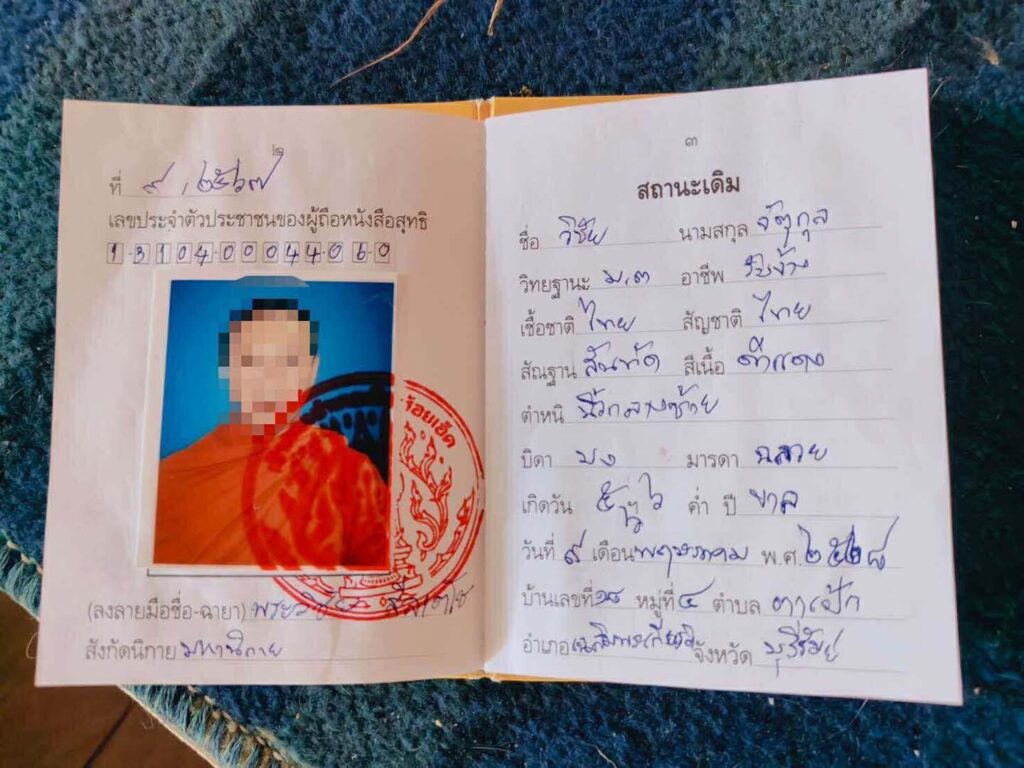 ๒
ที่ ๙ / ๒๕๖๗
เลขประจำตัวประชาชนของผู้ถือหนังสือสุทธิ
1-3104-00044-06-0
ร้อยเอ็ด
(ลงลายมือชื่อ-ฉายา) พระวิชัย
สังกัดนิกาย มหานิกาย
๓
สถานะเดิม
ชื่อ วิชัย นามสกุล จัตุกูล
วิทยฐานะ ม.๓ อาชีพ รับจ้าง
เชื้อชาติ ไทย สัญชาติ ไทย
สัณฐาน สันทัด สีเนื้อ ดำแดง
ตำหนิ นิ้วกลางซ้าย
บิดา มารดา ฉลวย
เกิดวัน ค่ำ ปี ขาล
วันที่ ๙ เดือน พฤษภาคม พ.ศ. ๒๕๒๘
บ้านเลขที่ ๑๘ หมู่ที่ ๔ ตำบล ตาเป๊ก
อำเภอ เฉลิมพระเกียรติ จังหวัด บุรีรัมย์